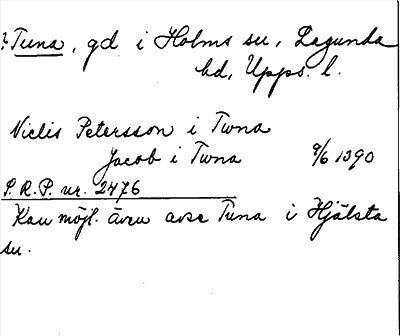 ? Tuna, gd i Holms sn, Lagunda
hd, Upps. l.
Niclis Petersson i Twna
Jacob i Twna 9/6 1390
P.R.P. nr. 2476
Kan möjl. även avse Tuna i Hjälsta
sn.